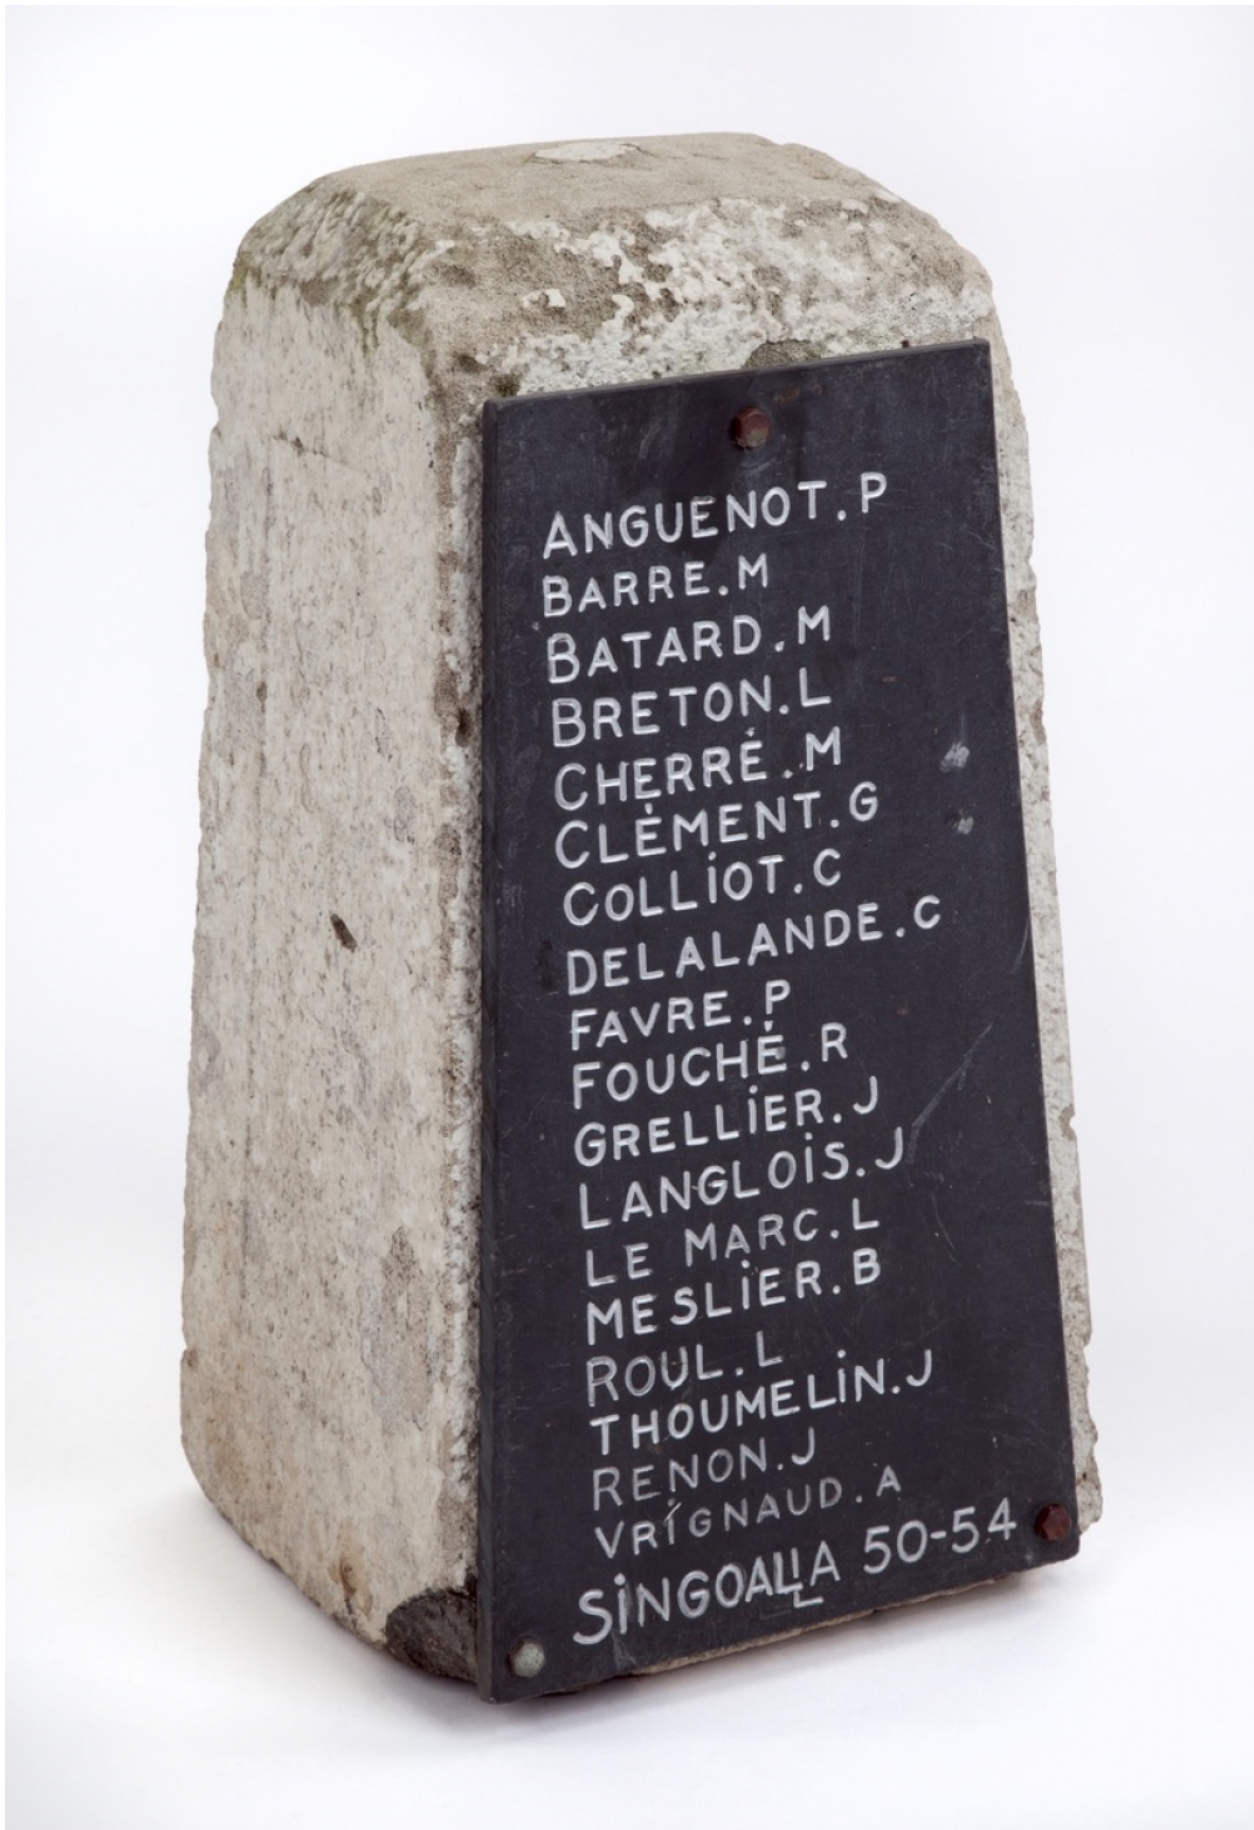 ANGUENOT.P
BARRE.M
BATARD.M
BRETON.L
CHERRÉ.M
CLÉMENT.G
COLLiOT.C
DELALANDE.C
FAVRE.P
FOUCHÉ.R
GRELLiER.J
LANGLOiS.J
LE MARC.L
MESLiER.B
ROUL.L
THOUMELiN.J
RENON.J
VRiGNAUD.A
SiNGOALLA 50-54